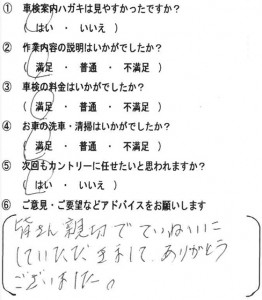 ① 車検案内ハガキは見やすかったですか？
（ はい ・ いいえ ）
② 作業内容の説明はいかがでしたか？
（ 満足 ・ 普通 ・ 不満足 ）
③ 車検の料金はいかがでしたか？
（ 満足 ・ 普通 ・ 不満足 ）
④ お車の洗車・清掃はいかがでしたか？
（ 満足 ・ 普通 ・ 不満足 ）
⑤ 次回もカントリーに任せたいと思われますか？
（ はい ・ いいえ ）
⑥ ご意見・ご要望などアドバイスをお願いします
皆さん親切でていねいに
していただきまして、ありがとう
ございました。